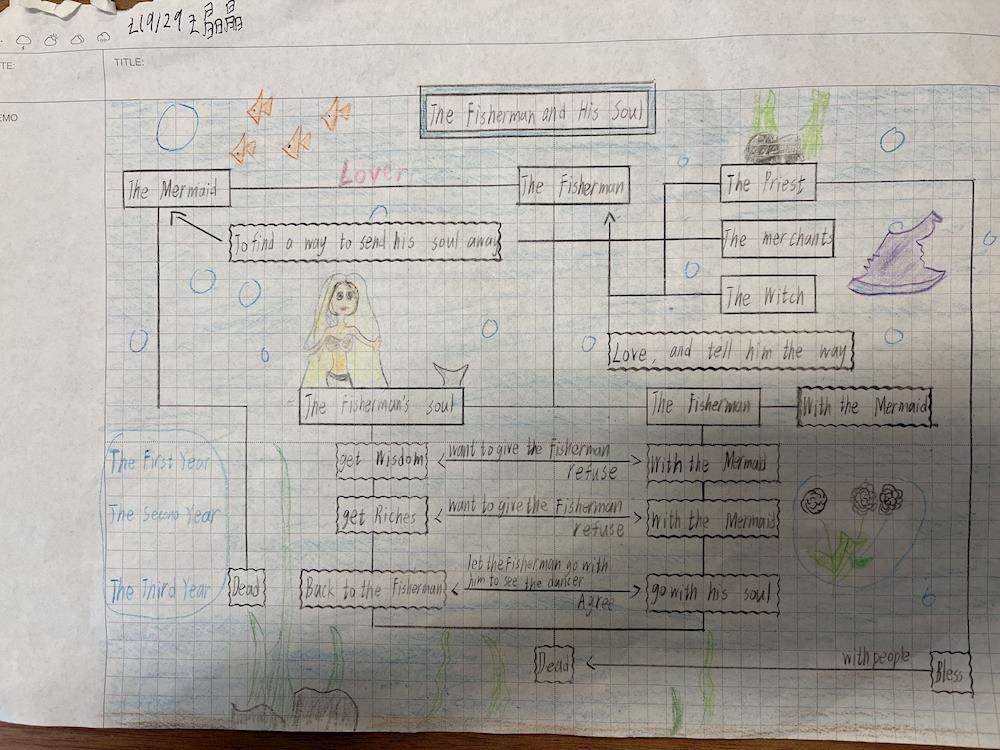 219/29 王晶晶
TE:
TITLE:
EMO
The Fisherman and His Soul
The Mermaid
Lover
The Fisherman
The Priest
To find a way to send his soul away
The merchants
The Witch
Love, and tell him the way
The Fisherman's soul
The Fisherman
With the Mermaid
The First Year
get Wisdom
want to give the Fisherman
refuse
With the Mermaid
The Second Year
get Riches
want to give the Fisherman
refuse
With the Mermaid
The Third Year
Dead
Back to the Fisherman
let the Fisherman go with
him to see the dancer
Agree
go with his soul
Dead
with people
Bless